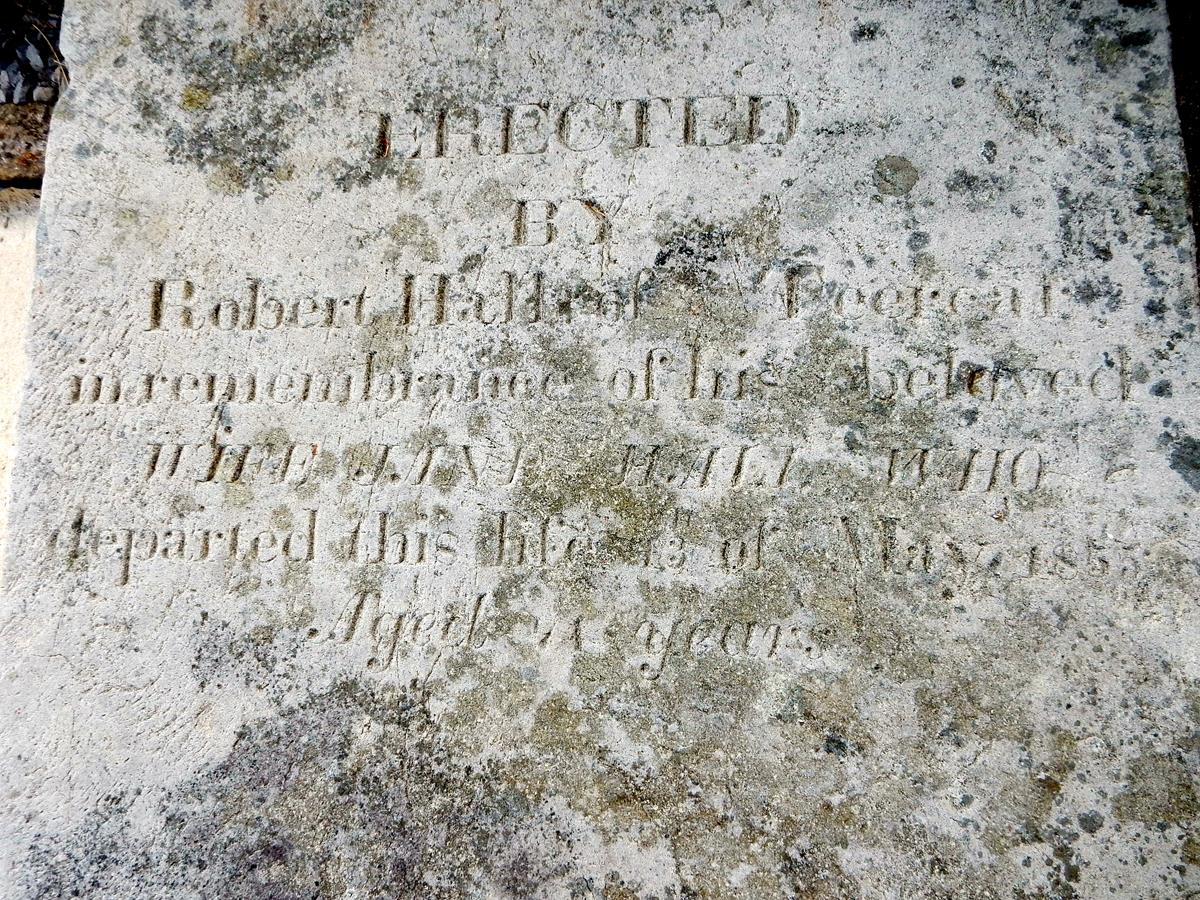 ERECTED
BY
Robert Hall of
in remembrance of his beloved
WIFE JANE HALL WHO
departed this life 13th of May
Aged years